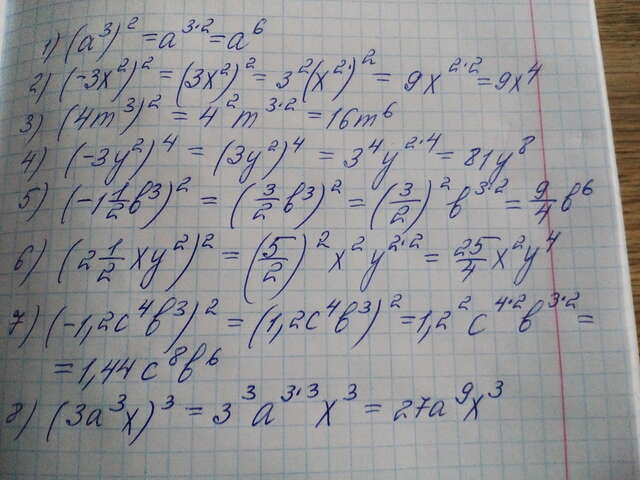 1) (a³)² = a³·² = a⁶
2) (-3x²)² = (3x²)² = 3²(x²)² = 9x²·² = 9x⁴
3) (4m³)² = 4²m³·² = 16m⁶
4) (-3y²)⁴ = (3y²)⁴ = 3⁴y²·⁴ = 81y⁸
5) (-1 1/2 b³)² = (3/2 b³)² = (3/2)² b³·² = 9/4 b⁶
6) (2 1/2 xy²)² = (5/2)² x²y²·² = 25/4 x²y⁴
7) (-1,2c⁴b³)² = (1,2c⁴b³)² = 1,2² c⁴·² b³·² =
= 1,44 c⁸b⁶
8) (3a³x)³ = 3³a³·³x³ = 27a⁹x³